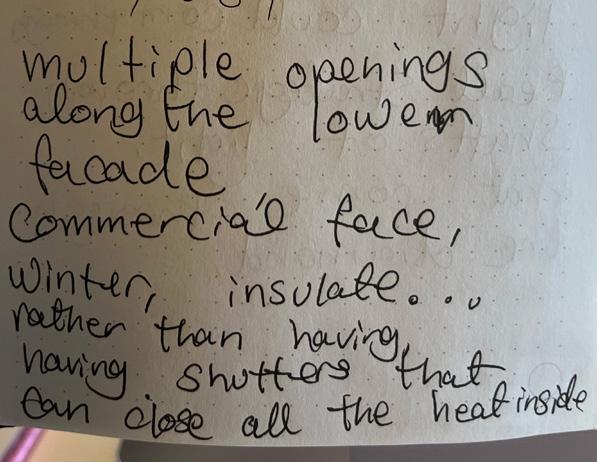 multiple openings
along the lower
facade
commercial face,
winter, insulate...
rather than having,
having shutters that
can close all the heat inside